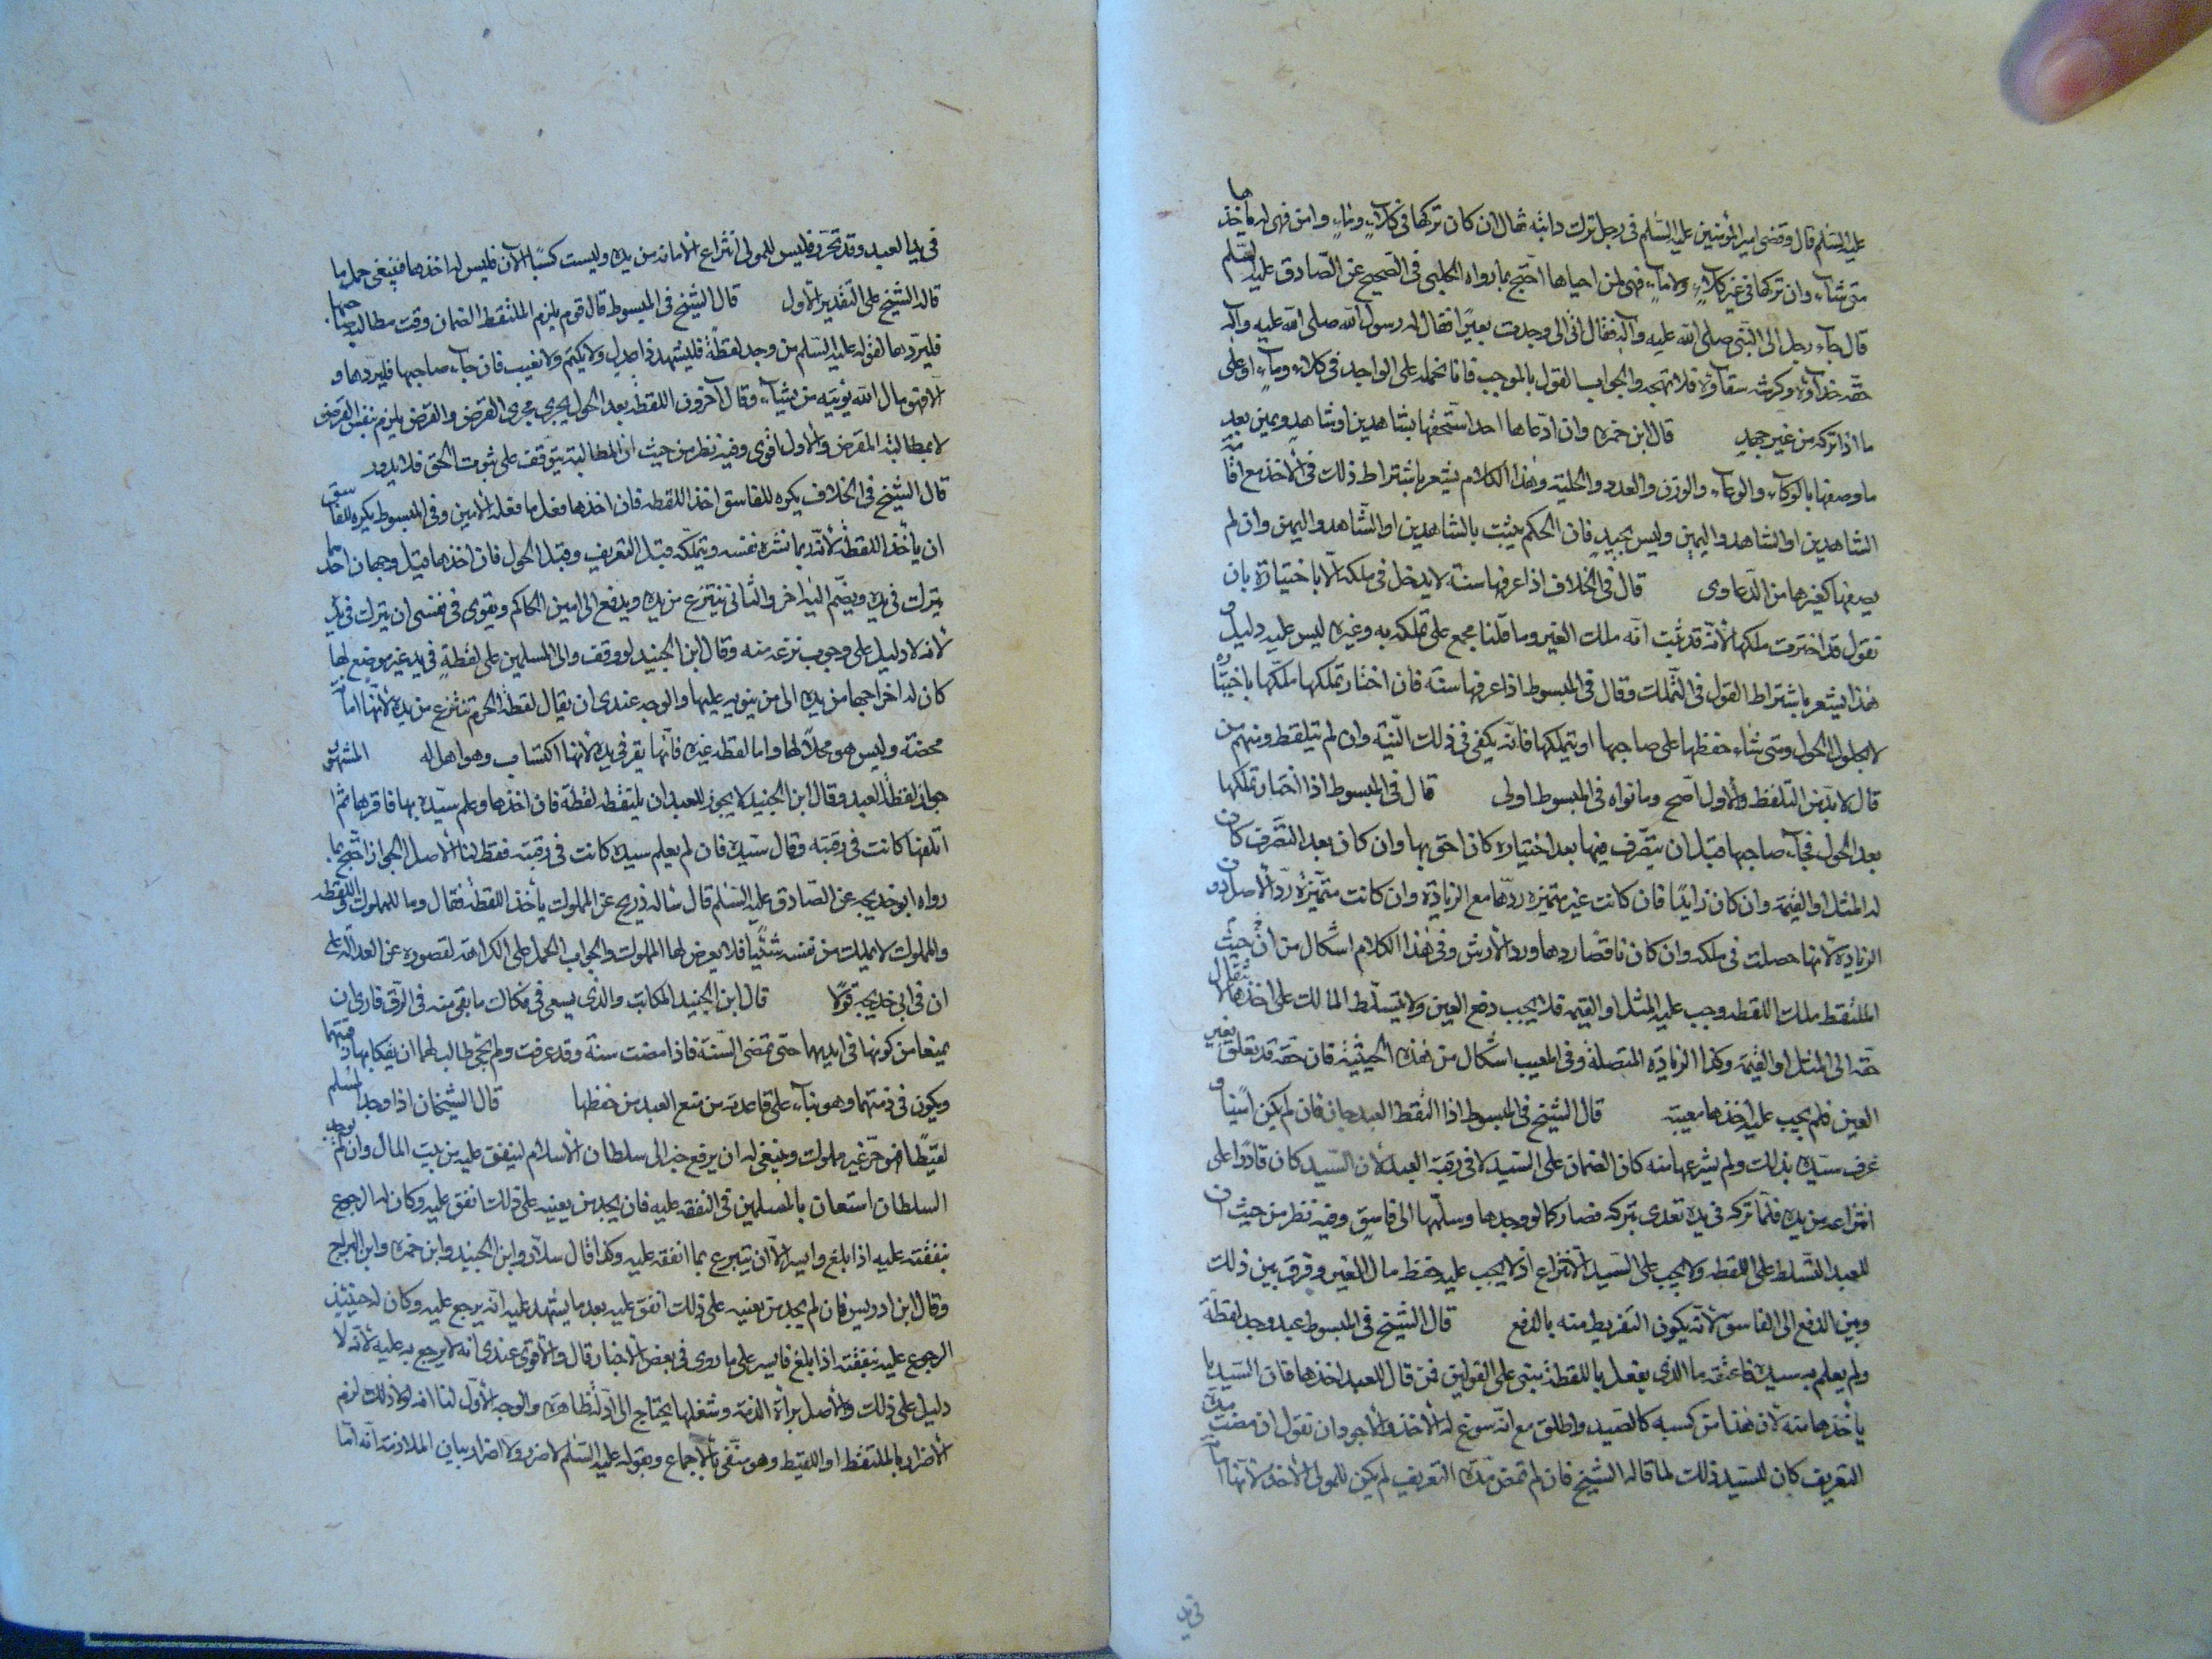 عليه السلم قال وقضى امير المؤمنين عليه السلم فى رجل ترك دابته فقال ان كان تركها فى كلاء وماء وامن فهى له ياخذها
متى شاء وان تركها فى غير كلاء ولا ماء فهى لمن احياها احتج بما رواه الحلبى فى الصحيح عن الصادق عليه السلم
قال جاء رجل الى النبى صلى الله عليه وآله فقال انى وجدت بعيرا فقال له رسول الله صلى الله عليه وآله
خفه حذاؤه وكرشه سقاؤه فلا تهجه والجواب القول بالموجب فانا نحمله على الواجد فى كلاء وماء او على
ما اذا تركه من غير جهد قال ابن حمزه وان ادعاها احد استحقها بشاهدين او شاهد ويمين بعد
ما وصفها بالوكاء والوعاء والوزن والعدد والحلية وهذا الكلام يشعر باشتراط ذلك فى الاخذ مع اقامة
الشاهدين او الشاهد واليمين وليس بجيد فان الحكم يثبت بالشاهدين او الشاهد واليمين وان لم
يصفها كغيرها من الدعاوى قال فى الخلاف اذا عرفها سنة لا يدخل فى ملكه الا باختياره بان
يقول قد اخترت ملكها لانه قد ثبت انه ملك الغير وما قلنا مجمع على تملكه به وغيره ليس عليه دليل و
هذا يشعر باشتراط القول فى التملك وقال فى المبسوط اذا عرفها سنة فان اختار تملكها ملكها باختياره
لا بحلول الحول ومتى شاء حفظها على صاحبها او يتملكها فانه يكفى فى ذلك النية وان لم يتلفظ ومنهم من
قال لا بد من التلفظ والاول اصح وما نواه فى المبسوط اولى قال فى المبسوط اذا اختار تملكها
بعد الحول فجاء صاحبها قبل ان يتصرف فيها بعد اختياره كان احق بها وان كان بعد التصرف كان
له المثل او القيمة وان كان زايدا فان كانت غير متميزه ردها مع الزيادة وان كانت متميزة رد الاصل دون
الزيادة لانها حصلت فى ملكه وان كان ناقصا ردها ورد الارش وفى هذا الكلام اشكال من حيث ان
الملتقط ملك اللقطه وجب عليه المثل او القيمه فلا يجب دفع العين ولا يتسلط المالك على اخذها لانتقال
حقه الى المثل او القيمة وكذا الزيادة المتصلة وفى المعيب اشكال من هذه الحيثية فان حقه قد تعلق بغير
العين فلم يجب عليه اخذها معيبة قال الشيخ فى المبسوط اذا التقط العبد جاز فان لم يكن امينا و
عرف سيده بذلك ولم ينتزعها منه كان الضمان على السيد لا فى رقبة العبد لان السيد كان قادرا على
انتزاعه من يده فلما تركه فى يده تعدى بتركه فصار كما لو وجدها وسلمها الى فاسق وفيه نظر من حيث ان
للعبد التسلط على اللقطه ولا يجب على السيد الانتزاع اذ لا يجب عليه حفظ مال الغير وفرق بين ذلك
وبين الدفع الى الفاسق لانه يكون التفريط منه بالدفع قال الشيخ فى المبسوط عبد وجد لقطة
ولم يعلم به سيده فاعتقه ما الذى يفعل باللقطة يبنى على القولين فمن قال للعبد اخذها فان السيد
ياخذها منه لان هذا من كسبه كالصيد واطلق مع انه سوغ له الاخذ والاجود ان نقول ان مضت مدة
التعريف كان للسيد ذلك لما قاله الشيخ فان لم تمض مدة التعريف لم يكن للمولى الاخذ لانها امانة
فى يد
فى يد العبد وقد تحرر فليس للمولى انتزاع الامانه من يده وليست كسبا الآن فليس له اخذها فينبغى حمل ما
قاله الشيخ على التقدير الاول قال الشيخ فى المبسوط قال قوم يلزم الملتقط الضمان وقت مطالبة صاحبها
فليردها لقوله عليه السلم من وجد لقطة فليشهد ذا عدل ولا يكتم ولا يغيب فان جاء صاحبها فليردها و
الا فهو مال الله يؤتيه من يشاء وقال آخرون اللقطة بعد الحول يجرى مجرى القرض والقرض يلزم بنفس القرض
لا بمطالبة المقرض والاول اقوى وفيه نظر من حيث ان المطالبة يتوقف على ثبوت الحق فلا يدور
قال الشيخ فى الخلاف يكره للفاسق اخذ اللقطه فان اخذها فعل ما فعله الامين وفى المبسوط يكره للفاسق
ان ياخذ اللقطة لانه ربما تشره نفسه ويتملكه قبل التعريف وقبل الحول فان اخذها قيل وجهان احدهما
يترك فى يده ويضم اليه اخر والثانى ينتزع من يده ويدفع الى امين الحاكم ويقوى فى نفسى ان يترك فى يده
لانه لا دليل على وجوب نزعه منه وقال ابن الجنيد لو وقف والى المسلمين على لقطة فى يد غير موضع لها
كان له اخراجها من يده الى من ينوبه عليها والوجه عندى ان يقال لقطة الحرم تنتزع من يده لانها امانة
محضة وليس هو محلا لها واما لقطه غيره فانها يقر فى يده لانها اكتساب وهو اهل له المشهور
جواز لقطة العبد وقال ابن الجنيد لا يجوز للعبد ان يلتقط لقطة فان اخذها وعلم سيده بها فاقرها ثم
اتلفها كانت فى رقبته وقال سيده فان لم يعلم سيده كانت فى رقبته فقط لنا الاصل الجواز احتج بما
رواه ابو خديجه عن الصادق عليه السلم قال ساله ذريح عن المملوك ياخذ اللقطة فقال وما للمملوك واللقطه
والمملوك لا يملك من نفسه شيئا فلا يعرض لها المملوك والجواب الحمل على الكراهة لقصوره عن العدالة على
ان فى ابى خديجة قولا قال ابن الجنيد المكاتب والذى يسعى فى فكاك ما بقى منه فى الرق فارى ان
يمنعا من كونها فى ايديهما حتى تمضى السنة فاذا مضت سنة وقد عرفت ولم يجئ طالب لهما ان يفكا بها رقبتهما
ويكون فى ذمتهما وهو بناء على قاعدته من منع العبد من حفظها قال الشيخان اذا وجد المسلم
لقيطا فهو حر غير مملوك وينبغى له ان يرفع خبره الى سلطان الاسلام لينفق عليه من بيت المال وان لم يوجد
السلطان استعان بالمسلمين فى النفقه عليه فان لم يجد من يعينه على ذلك انفق عليه وكان له الرجوع
بنفقته عليه اذا بلغ وايسر الا ان يتبرع بما انفقه عليه وكذا قال سلار وابن الجنيد وابن حمزه وابن البراج
وقال ابن ادريس فان لم يجد من يعينه على ذلك انفق عليه بعد ما يشهد عليه انه يرجع عليه وكان له حينئذ
الرجوع عليه بنفقته اذا بلغ فايسر على ما روى فى بعض الاخبار قال والاقوى عندى انه لا يرجع به عليه لانه لا
دليل على ذلك والاصل براة الذمة وشغلها يحتاج الى ادلة ظاهره والوجه الاول لنا انه لولا ذلك لزم
الاضرار بالملتقط او اللقيط وهو منفى بالاجماع وبقوله عليه السلم لا ضرر ولا اضرار بيان الملازمة انه اما